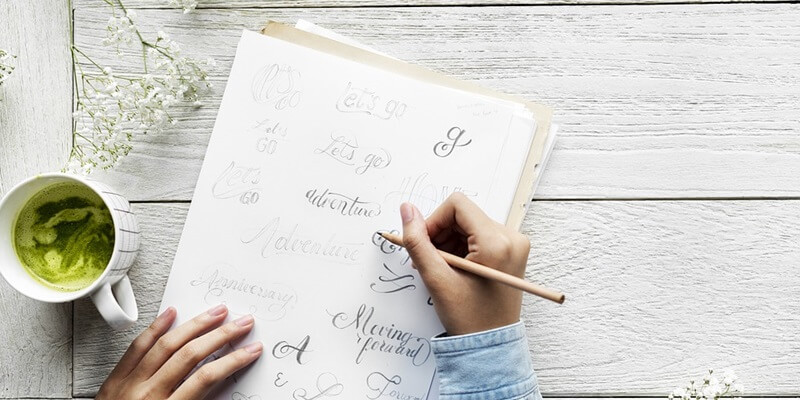 Let's
GO
Let's go
Let's
GO
Let's go
g
Let's
GO
adventure
Adventure
Anniversary
Moving
forward
A
&